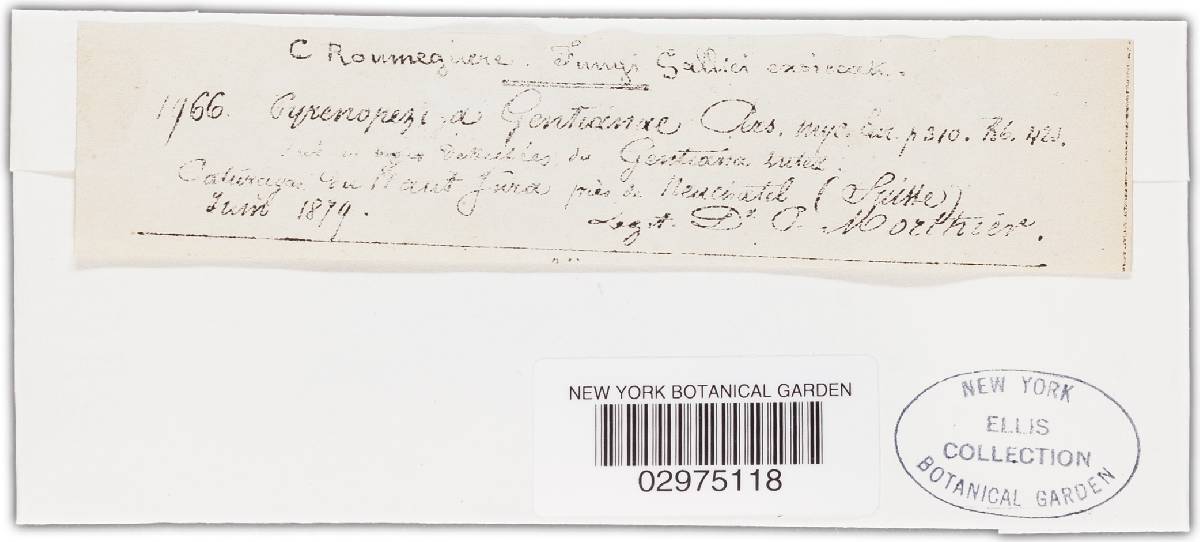 C Roumeguere. Fungi Gallici exsiccati.
1966. Pyrenopeziza Gentianae Crs. myc. Eur. p 210. Rb. 423.
detachées de Gentiana lutea.
Paturages du Haut Jura près de Neuchatel (Suisse)
Juin 1879. Legit. Dr. P. Morthier.
NEW YORK BOTANICAL GARDEN
02975118
NEW YORK
ELLIS
COLLECTION
BOTANICAL GARDEN